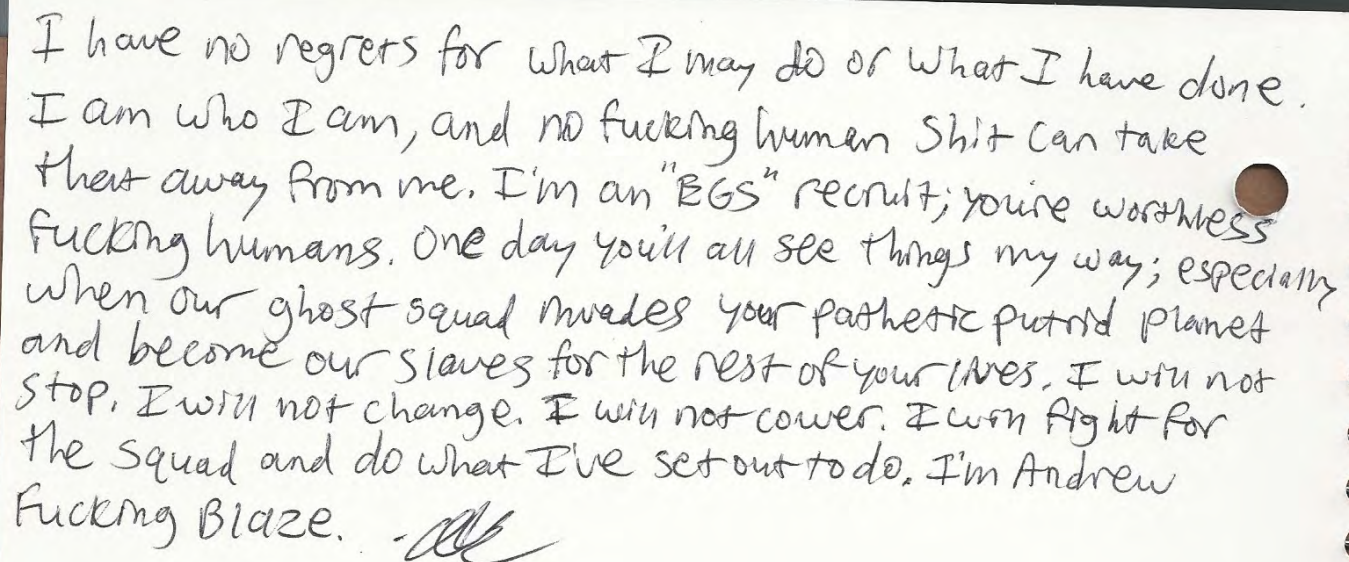 I have no regrets for what I may do or what I have done.
I am who I am, and no fucking human shit can take
that away from me. I'm an "EGS" recruit; you're worthless
fucking humans. One day you'll all see things my way; especially
when our ghost squad invades your pathetic putrid planet
and become our slaves for the rest of your lives. I will not
stop. I will not change. I will not cower. I will fight for
the squad and do what I've set out to do. I'm Andrew
Fucking Blaze.